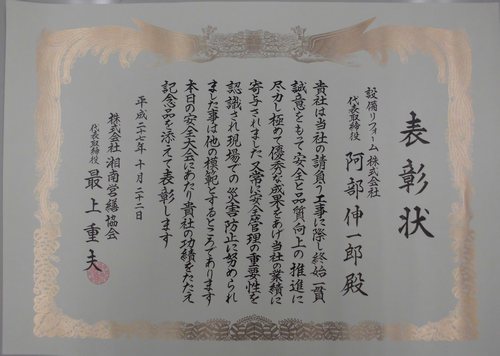 表彰状
設備リフォーム株式会社
代表取締役 阿部伸一郎殿
貴社は当社の請負う工事に際し終始一貫
誠意をもって安全と品質向上の推進に
尽力し極めて優秀な成果をあげ当社の業績に
寄与されました又常に安全管理の重要性を
認識され現場での災害防止に努められ
ました事は他の模範とするところであります
本日の安全大会にあたり貴社の功績をたたえ
記念品を添えて表彰します
平成二十七年十月二十二日
株式会社湘南営繕協会
代表取締役 最上重夫